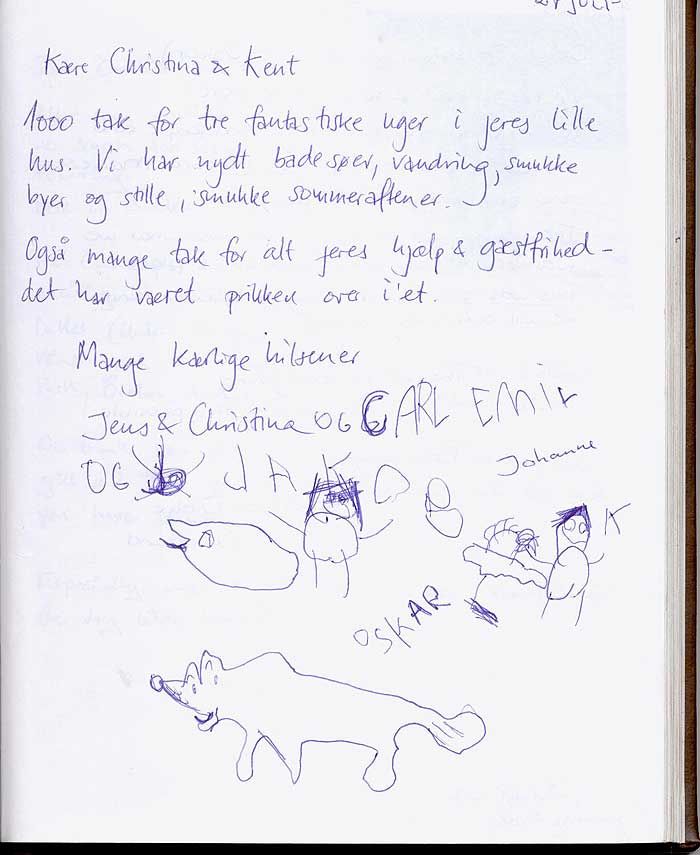 JULI
Kære Christina & Kent
1000 tak for tre fantastiske uger i jeres lille
hus. Vi har nydt badesøer, vandring, smukke
byer og stille, smukke sommeraftener.
Også mange tak for alt jeres hjælp & gæstfrihed –
det har været prikken over i'et.
Mange kærlige hilsener
Jens & Christina OG CARL EMIL
OG JAKOB
Johanne
OSKAR